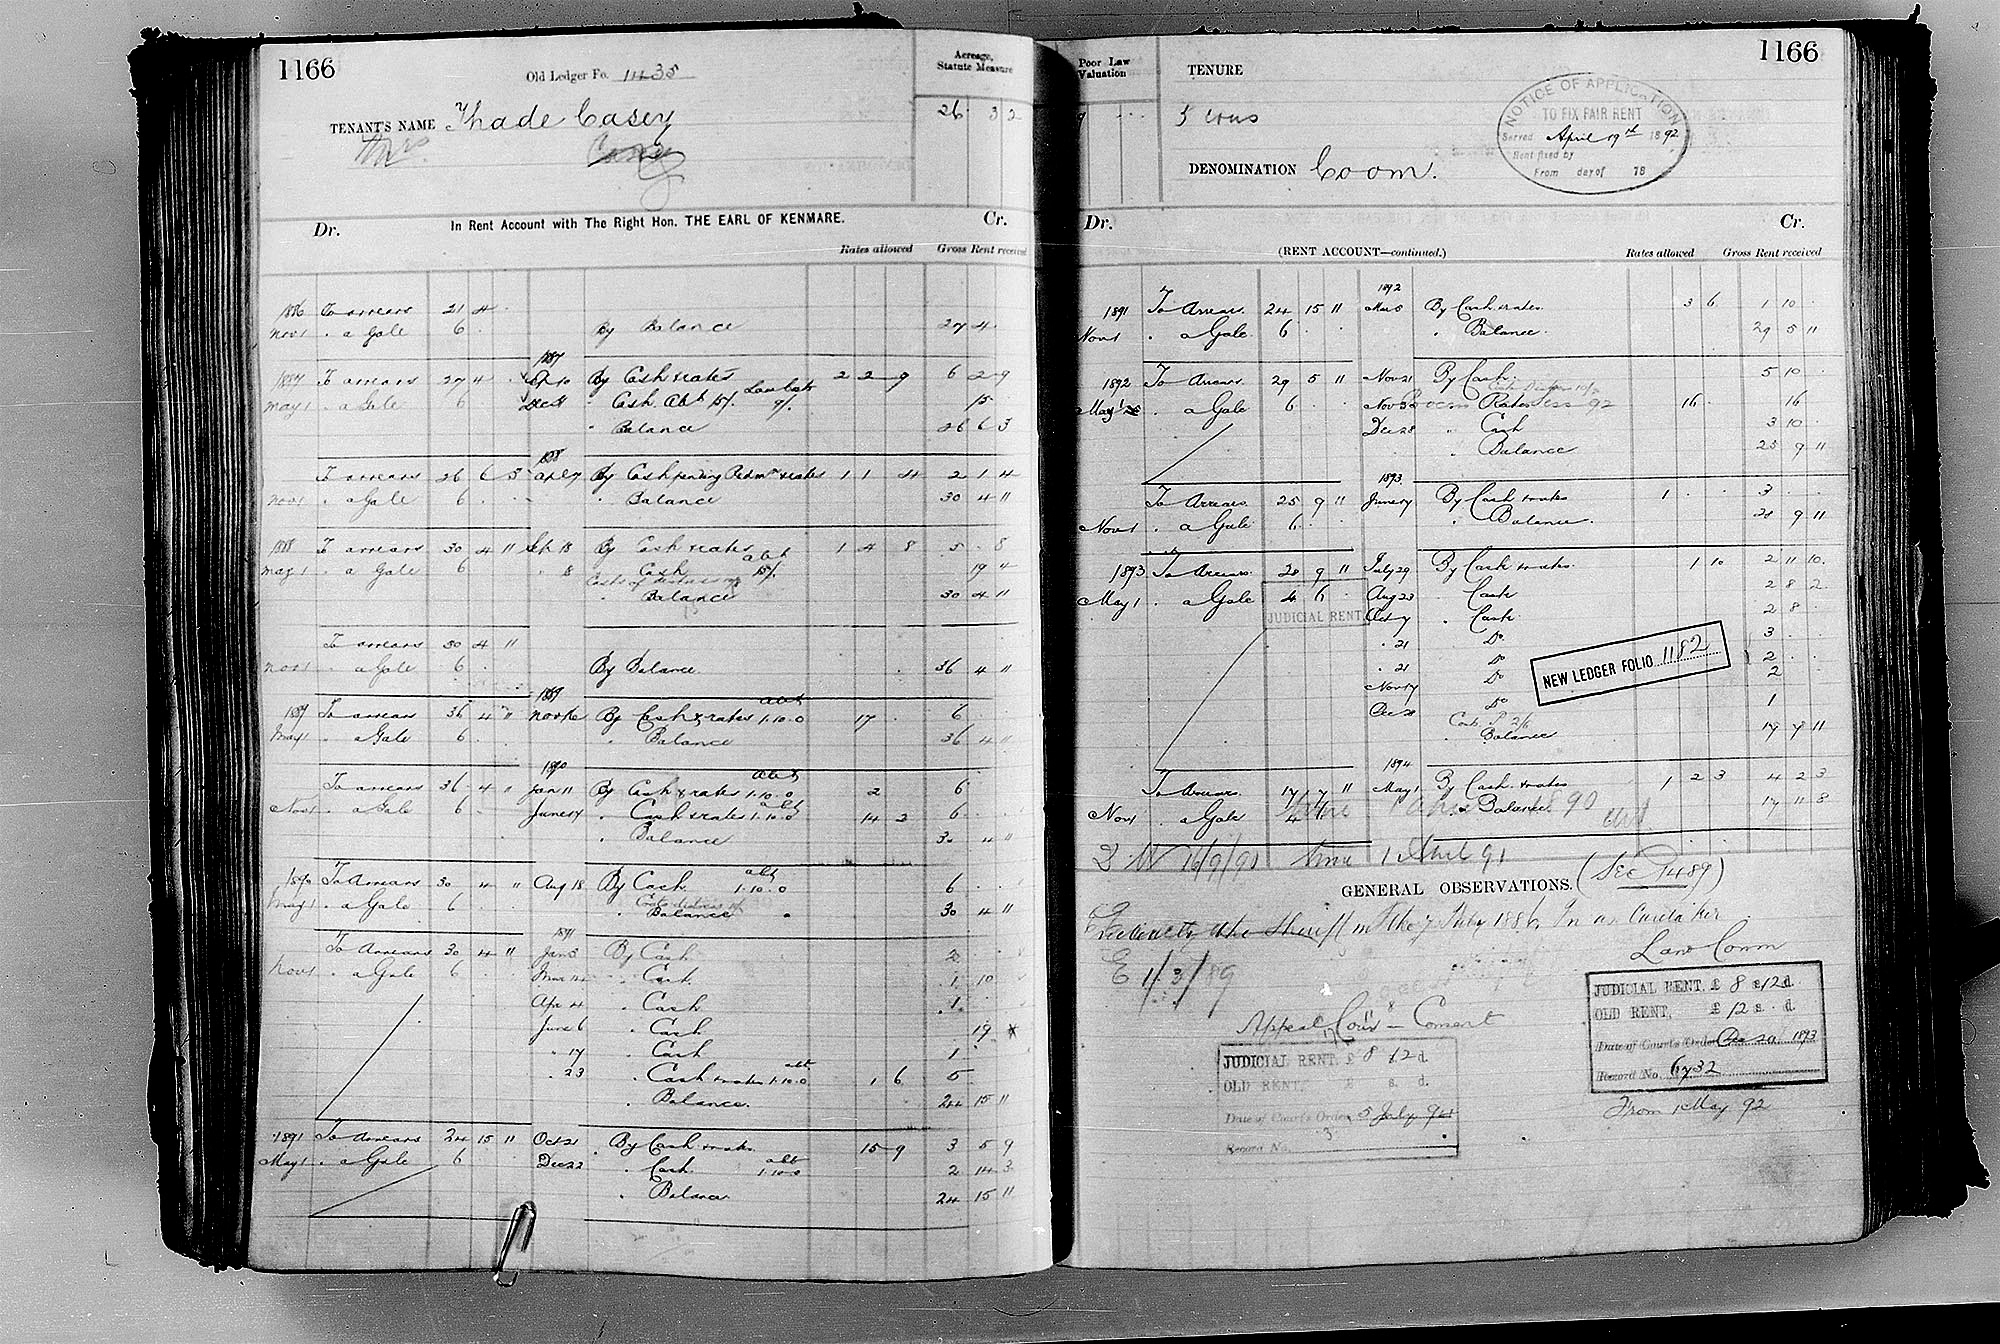 1166
Old Ledger Fo. 1435
Acreage, Statute Measure
TENANT'S NAME Thade Casey
26 3 2
Mrs. Casey
Dr. In Rent Account with The Right Hon. THE EARL OF KENMARE. Cr.
Rates allowed Gross Rent received
1886 To arrears 21 4 .
Nov 1 . a Gale 6 . By Balance 27 4 .
1887
1887 To arrears 27 4 . By Cash & rates 2 2 9 6 2 9
May 1 . a Gale 6 Dec . Cash Abt 15/. 15 .
. Balance 26 6 3
1888
To arrears 26 6 3 By Cash pending Redmn & rates 1 1 4 2 1 4
Nov 1 . a Gale 6 . . Balance 30 4 11
1888 To arrears 30 4 11 Sep 18 By Cash & rates 1 4 8 5 . 8
May 1 . a Gale 6 . 8 Cash abt 15/. 19 4
Costs of distress
Balance 30 4 11
To arrears 30 4 11
Nov 1 . a Gale 6 . By Balance 36 4 11
1889
1889 To arrears 36 4 11 By Cash & rates abt 1.10.0 17 . 6 .
May 1 . a Gale 6 . . Balance 36 4 11
1890
To arrears 36 4 11 Jan 11 By Cash & rates abt 1.10.0 2 6 .
Nov 1 . a Gale 6 . June 14 . Cash & rates abt 1.10.0 14 2 6 .
. Balance 30 4 11
1890 To Arrears 30 4 11 Aug 18 By Cash abt 1.10.0 6 . .
May 1 . a Gale 6 . Costs distress
. Balance 30 4 11
1891
To Arrears 30 4 11 Jan 3 By Cash 2 .
Nov 1 . a Gale 6 . Mar . Cash 1 10
Apr 4 . Cash 1 .
June 6 . Cash 19
. 17 . Cash 1
. 23 . Cash & rates abt 1.10.0 1 6 5
. Balance. 24 15 11
1891 To Arrears 24 15 11 Oct 21 By Cash & rates 15 9 3 5 9
May 1 . a Gale 6 Dec 22 . Cash abt 1.10.0 2 14 3
. Balance. 24 15 11
1166
Poor Law Valuation
TENURE
DENOMINATION Coom.
NOTICE OF APPLICATION
TO FIX FAIR RENT
Served April 19th 1892
Rent fixed by
From day of 18
Dr. Cr.
(RENT ACCOUNT—continued.) Rates allowed Gross Rent received
1892
1891 To Arrears. 24 15 11 Mar 8 By Cash & rates. 3 6 1 10 .
Nov 1 . a Gale 6 . . . Balance. 29 5 11
1892 To Arrears. 29 5 11 Nov 21 By Cash. 5 10 .
May 1 . a Gale 6 . . Nov Rates 92 16 . 16
Dec 28 " Cash 3 10 .
" Balance 25 9 11
1893
To Arrears 25 9 11 June 17 By Cash & rates 1 . . 3 . .
Nov 1 . a Gale 6 . . Balance. 28 9 11
1893 To Arrears. 28 9 11 July 29 By Cash & rates. 1 10 2 11 10.
May 1 . a Gale 4 6 . Aug 23 . Cash 2 8 2
JUDICIAL RENT. Oct 7 . Cash 2 8 .
. 21 Do 3 .
. 21 Do 2 .
Nov 17 Do 2
Dec 20 Do 1
NEW LEDGER FOLIO 1182
. Balance 17 7 11
1894
To Arrears 17 7 11 May 1 By Cash & rates 1 2 3 4 2 3
Nov 1 . a Gale 4 6 . Balance 17 11 8
16/9/90 time 1 April 91
GENERAL OBSERVATIONS. (See 7489)
the Sheriff in July 1886. In as Caretaker
E 1/3/89
Law Comm
Appeal Cour - Consent
JUDICIAL RENT, £ 8 s. 12 d.
OLD RENT, £ 12 s. d.
Date of Court's Order Dec 20 1893
Record No. 6732
From 1 May 92
JUDICIAL RENT. £ 8 12 d.
OLD RENT, £ s. d.
Date of Court's Order 5 July 94
Record No.